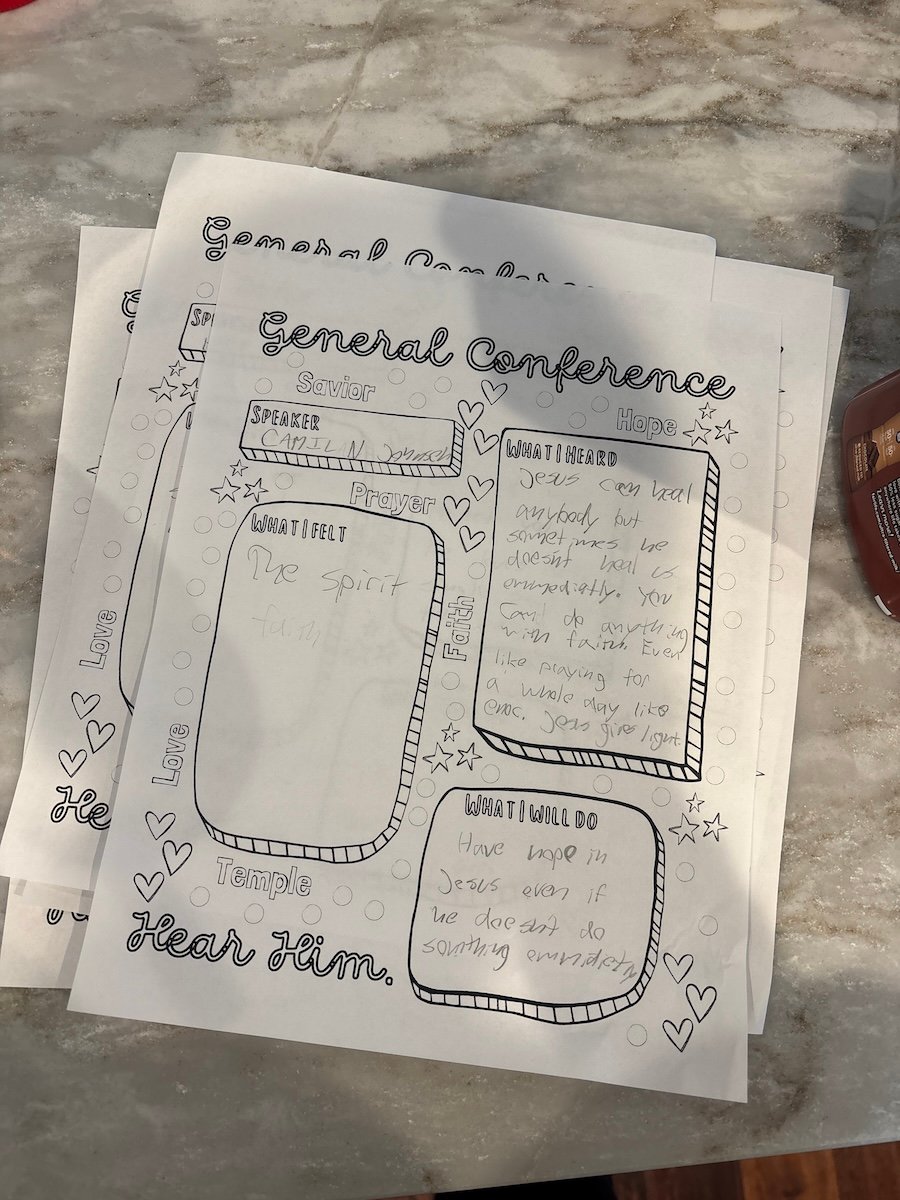 General Conference
General Conference
Savior
Hope
SPEAKER
CAMIL N Johnson
WHAT I HEARD
Jesus can heal
anybody but
sometimes he
doesn't heal us
emmediatly. You
can do anything
with faith. Even
like praying for
a whole day like
enoc. Jesus gives light.
Prayer
WHAT I FELT
The spirit
faith
Faith
Love
Love
WHAT I WILL DO
Have hope in
Jesus even if
he doesn't do
Temple
Hear Him.
He